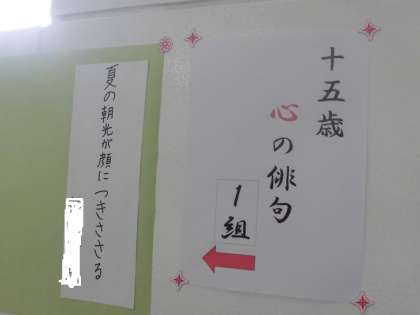 十五歳
心の俳句
1組
夏の朝光が顔につきささる